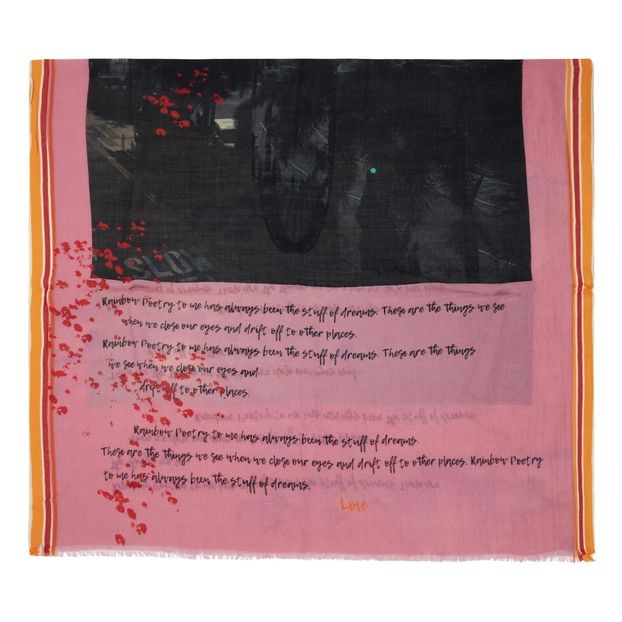 SLOW
Rainbow Poetry to me has always been the stuff of dreams. These are the things we see
when we close our eyes and drift off to other places.
Rainbow Poetry to me has always been the stuff of dreams. These are the things
we see when we close our eyes and
drift off to other places.
Rainbow Poetry to me has always been the stuff of dreams.
These are the things we see when we close our eyes and drift off to other places. Rainbow Poetry
to me has always been the stuff of dreams.
Love